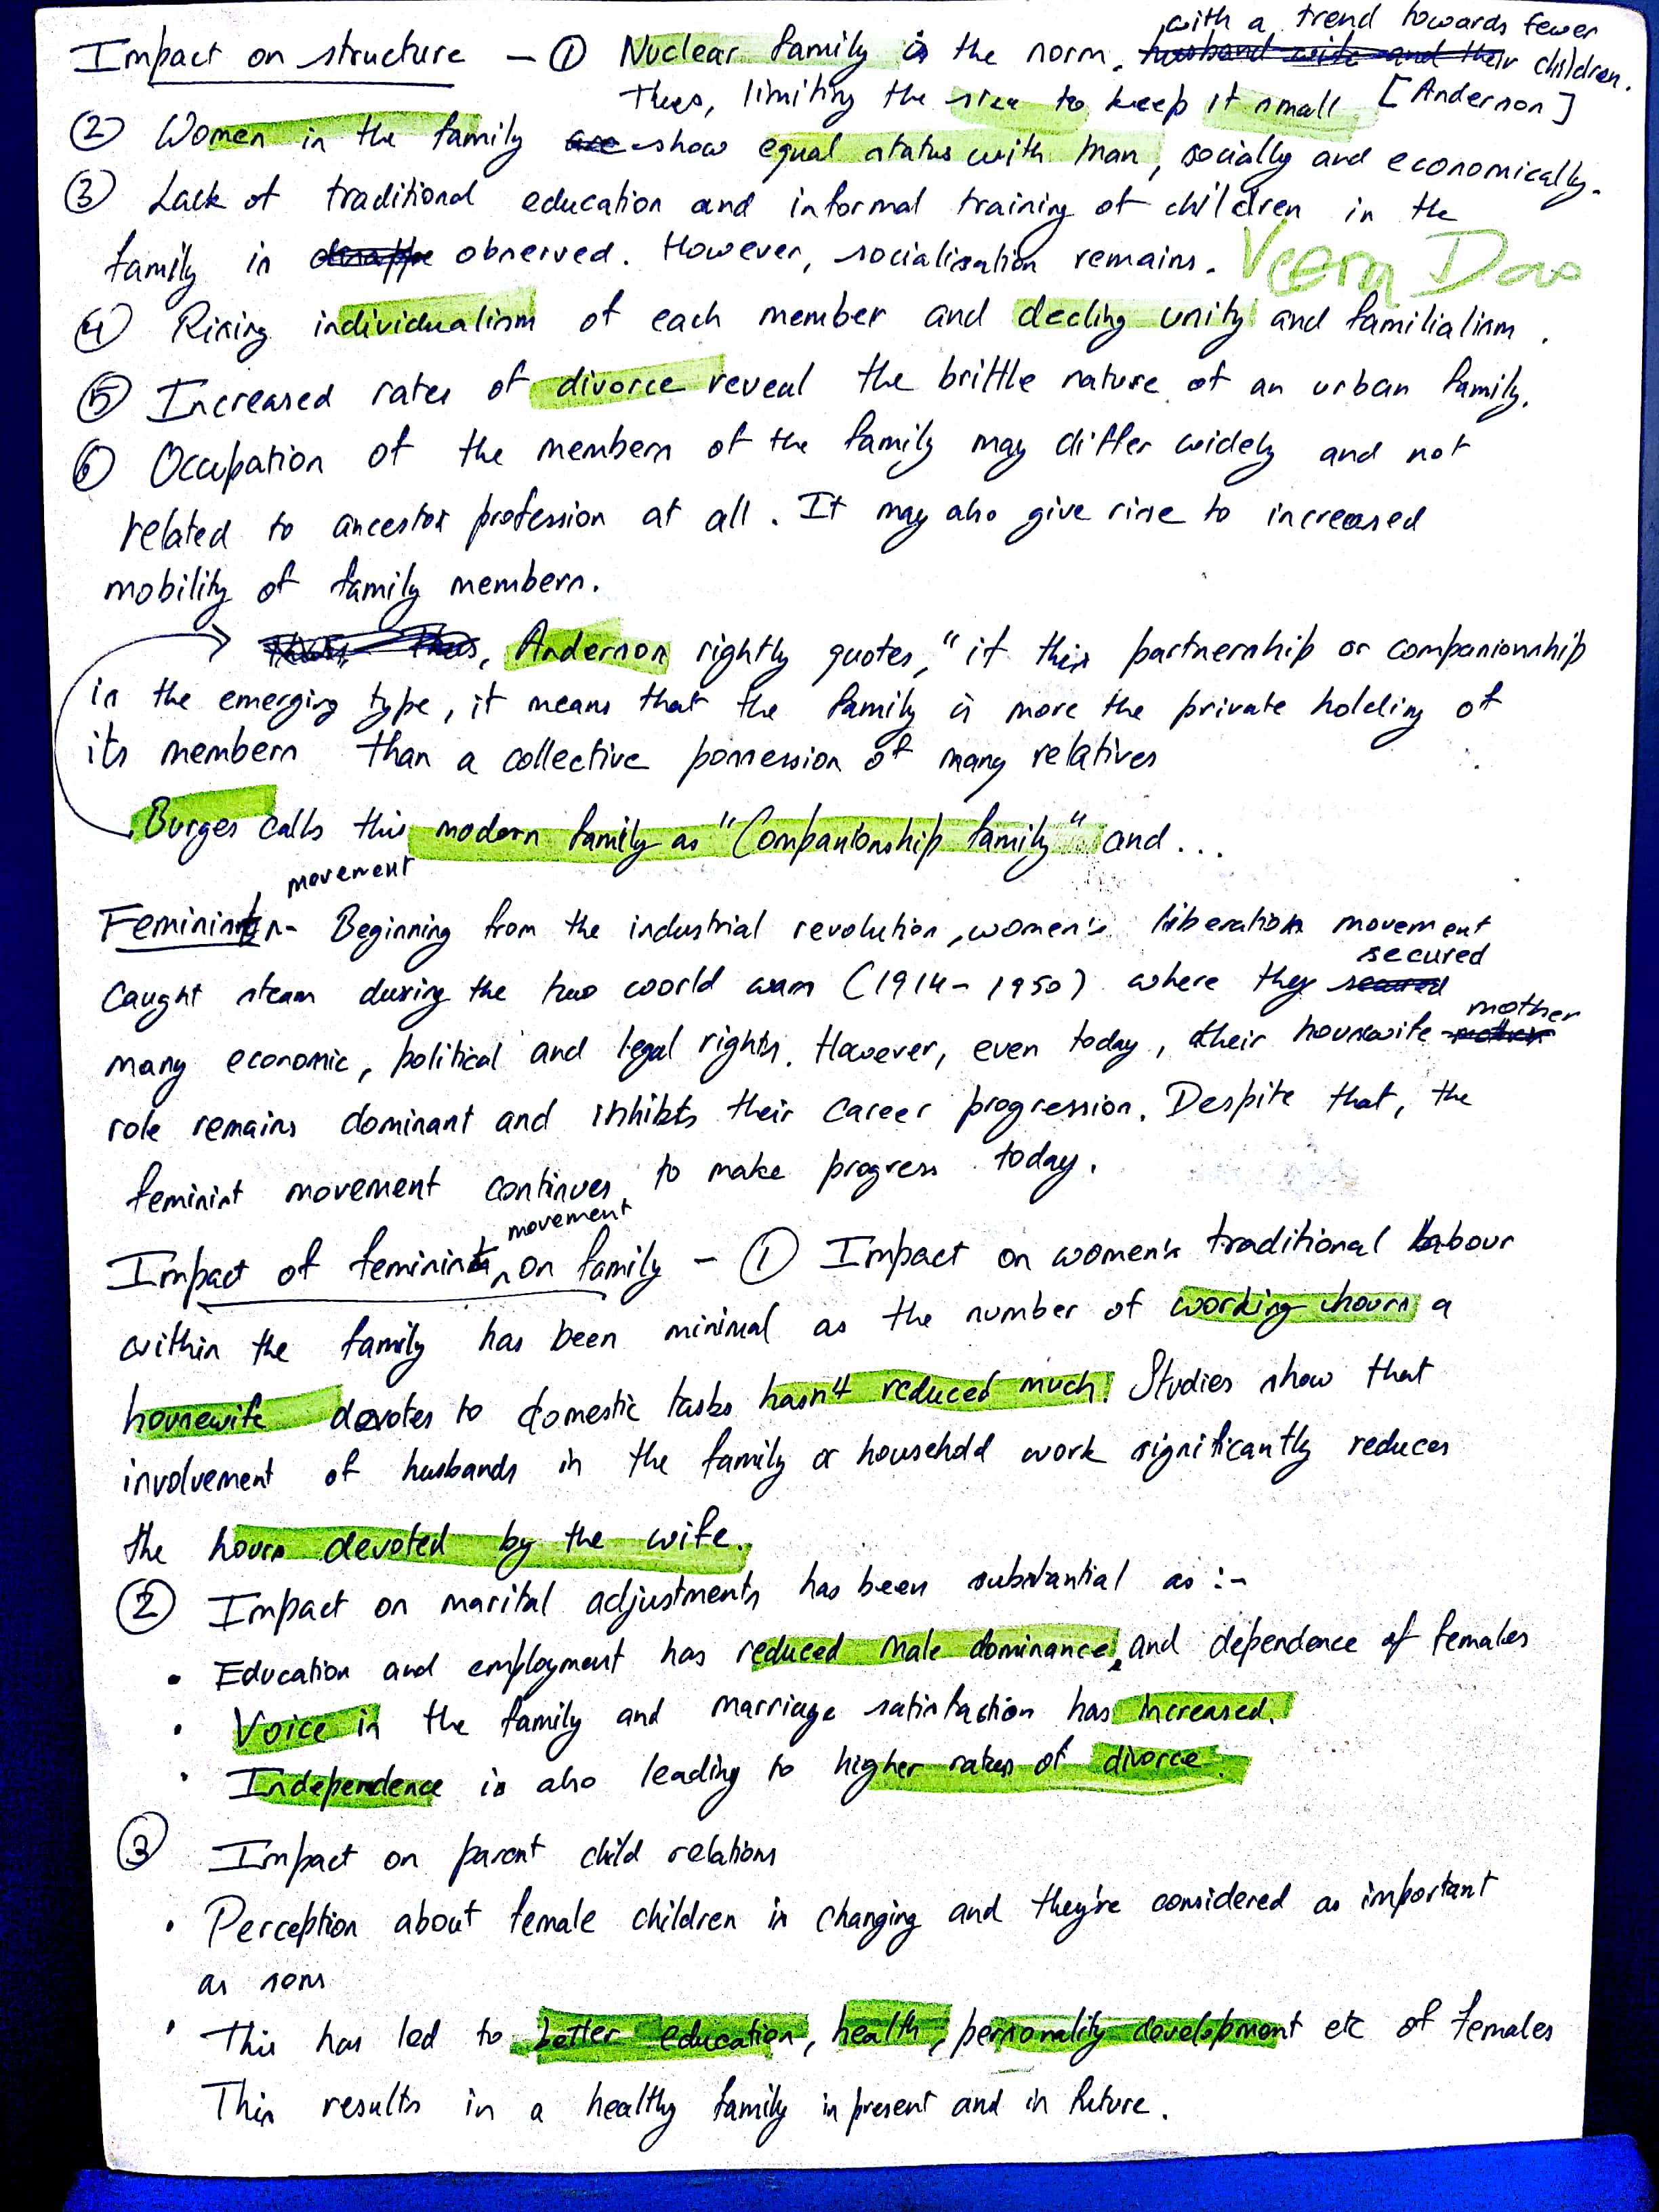 with a trend towards fewer
Impact on structure - ① Nuclear family is the norm, husband wife and their children.
Thus, limiting the size to keep it small [Anderson]
② Women in the family are show equal status with man, socially and economically.
③ Lack of traditional education and informal training of children in the
family is observed. However, socialisation remains. Veera Das
④ Rising individualism of each member and decling unity and familialism.
⑤ Increased rates of divorce reveal the brittle nature of an urban family.
⑥ Occupation of the members of the family may differ widely and not
related to ancestor profession at all. It may also give rise to increased
mobility of family members.
Thus, Anderson rightly quotes, "if this partnership or companionship
is the emerging type, it means that the family is more the private holding of
its members than a collective possession of many relatives
Burges calls this modern family as "Companionship family" and...
movement
Feminist - Beginning from the industrial revolution, women's liberation movement
secured
caught steam during the two world wars (1914-1950) where they secured
mother
many economic, political and legal rights. However, even today, their housewife mother
role remains dominant and inhibits their career progression. Despite that, the
feminist movement continues to make progress today.
movement
Impact of feminist on family - ① Impact on women's traditional labour
within the family has been minimal as the number of working hours a
housewife devotes to domestic tasks hasn't reduced much. Studies show that
involvement of husbands in the family or household work significantly reduces
the hours devoted by the wife.
② Impact on marital adjustments has been substantial as :-
• Education and employment has reduced male dominance and dependence of females
• Voice in the family and marriage satisfaction has increased.
• Independence is also leading to higher rates of divorce.
③ Impact on parent child relations
• Perception about female children is changing and they're considered as important
as sons
• This has led to better education, health, personality development etc of females
This results in a healthy family in present and in future.